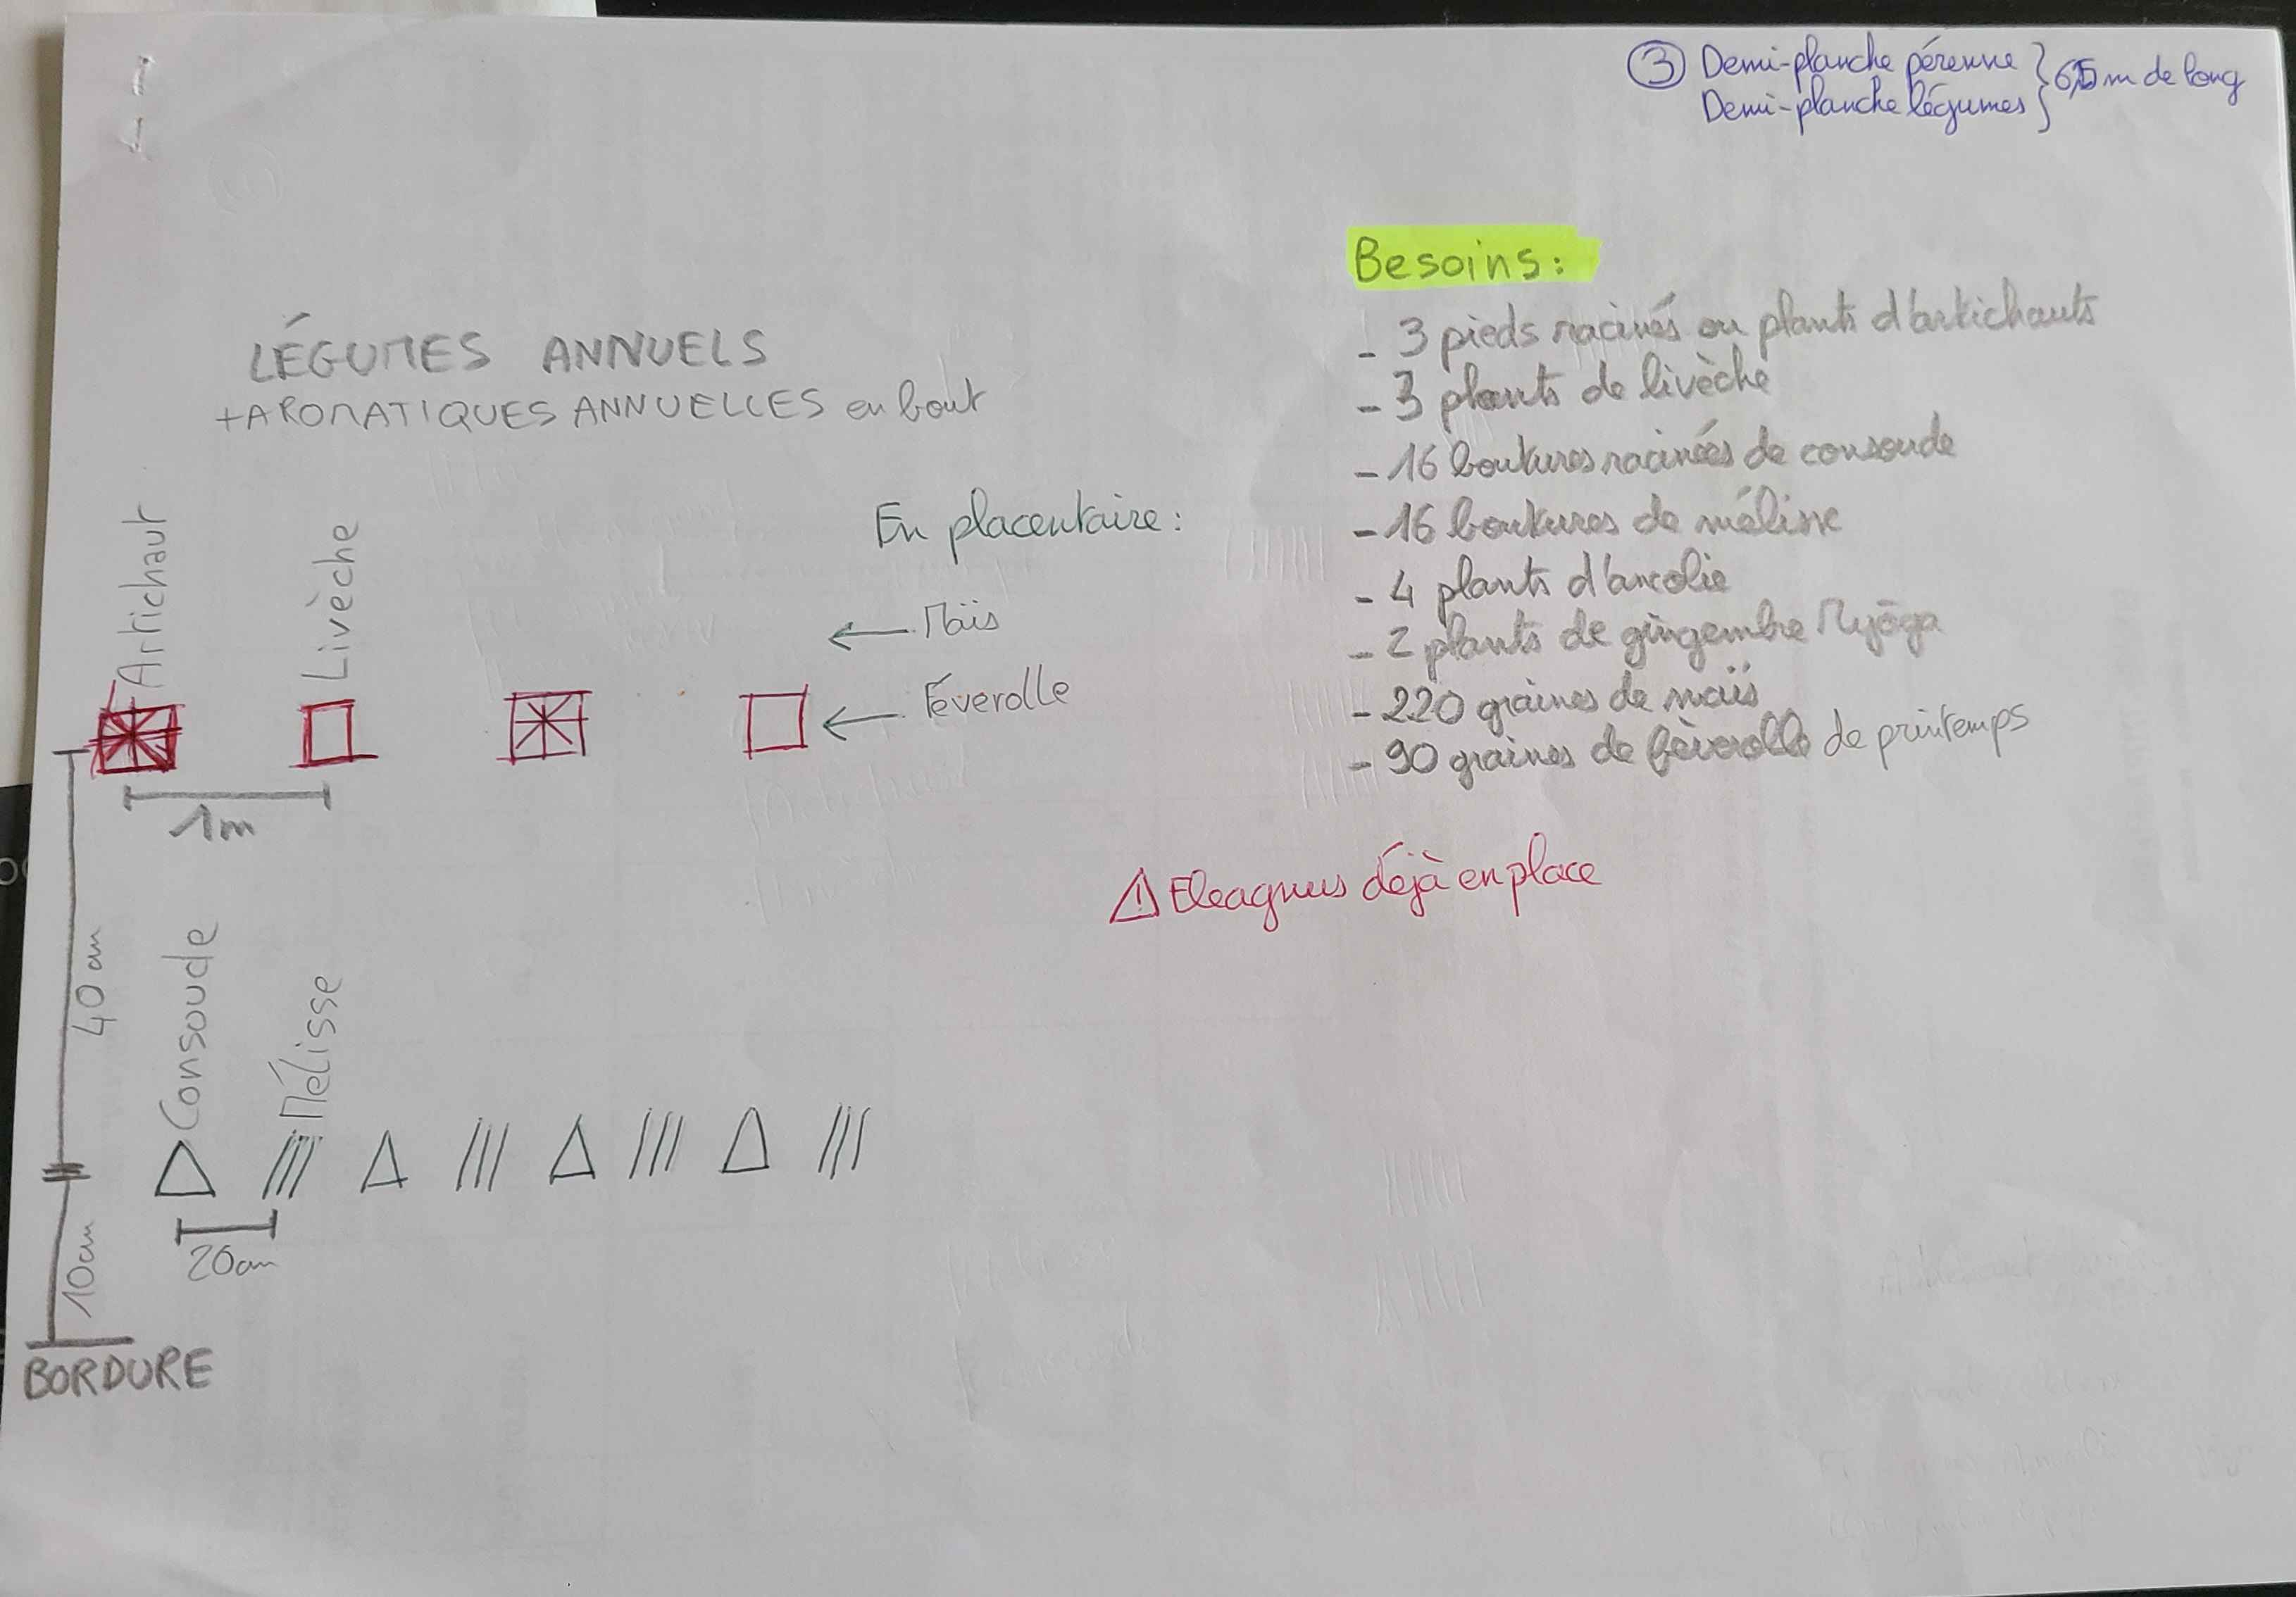 ③ Demi-planche pérenne } 6,5 m de long
Demi-planche légumes
Besoins:
- 3 pieds racinés ou plants d'artichauts
- 3 plants de livèche
- 16 boutures racinées de consoude
- 16 boutures de mélisse
- 4 plants d'ancolie
- 2 plants de gingembre Myōga
- 220 graines de maïs
- 90 graines de féverolle de printemps
LÉGUMES ANNUELS
+AROMATIQUES ANNUELLES en bout
En placentaire:
← Maïs
← Féverolle
Artichaut
Livèche
1m
⚠ Eleagnus déjà en place
40 cm
Consoude
Mélisse
20cm
10cm
BORDURE